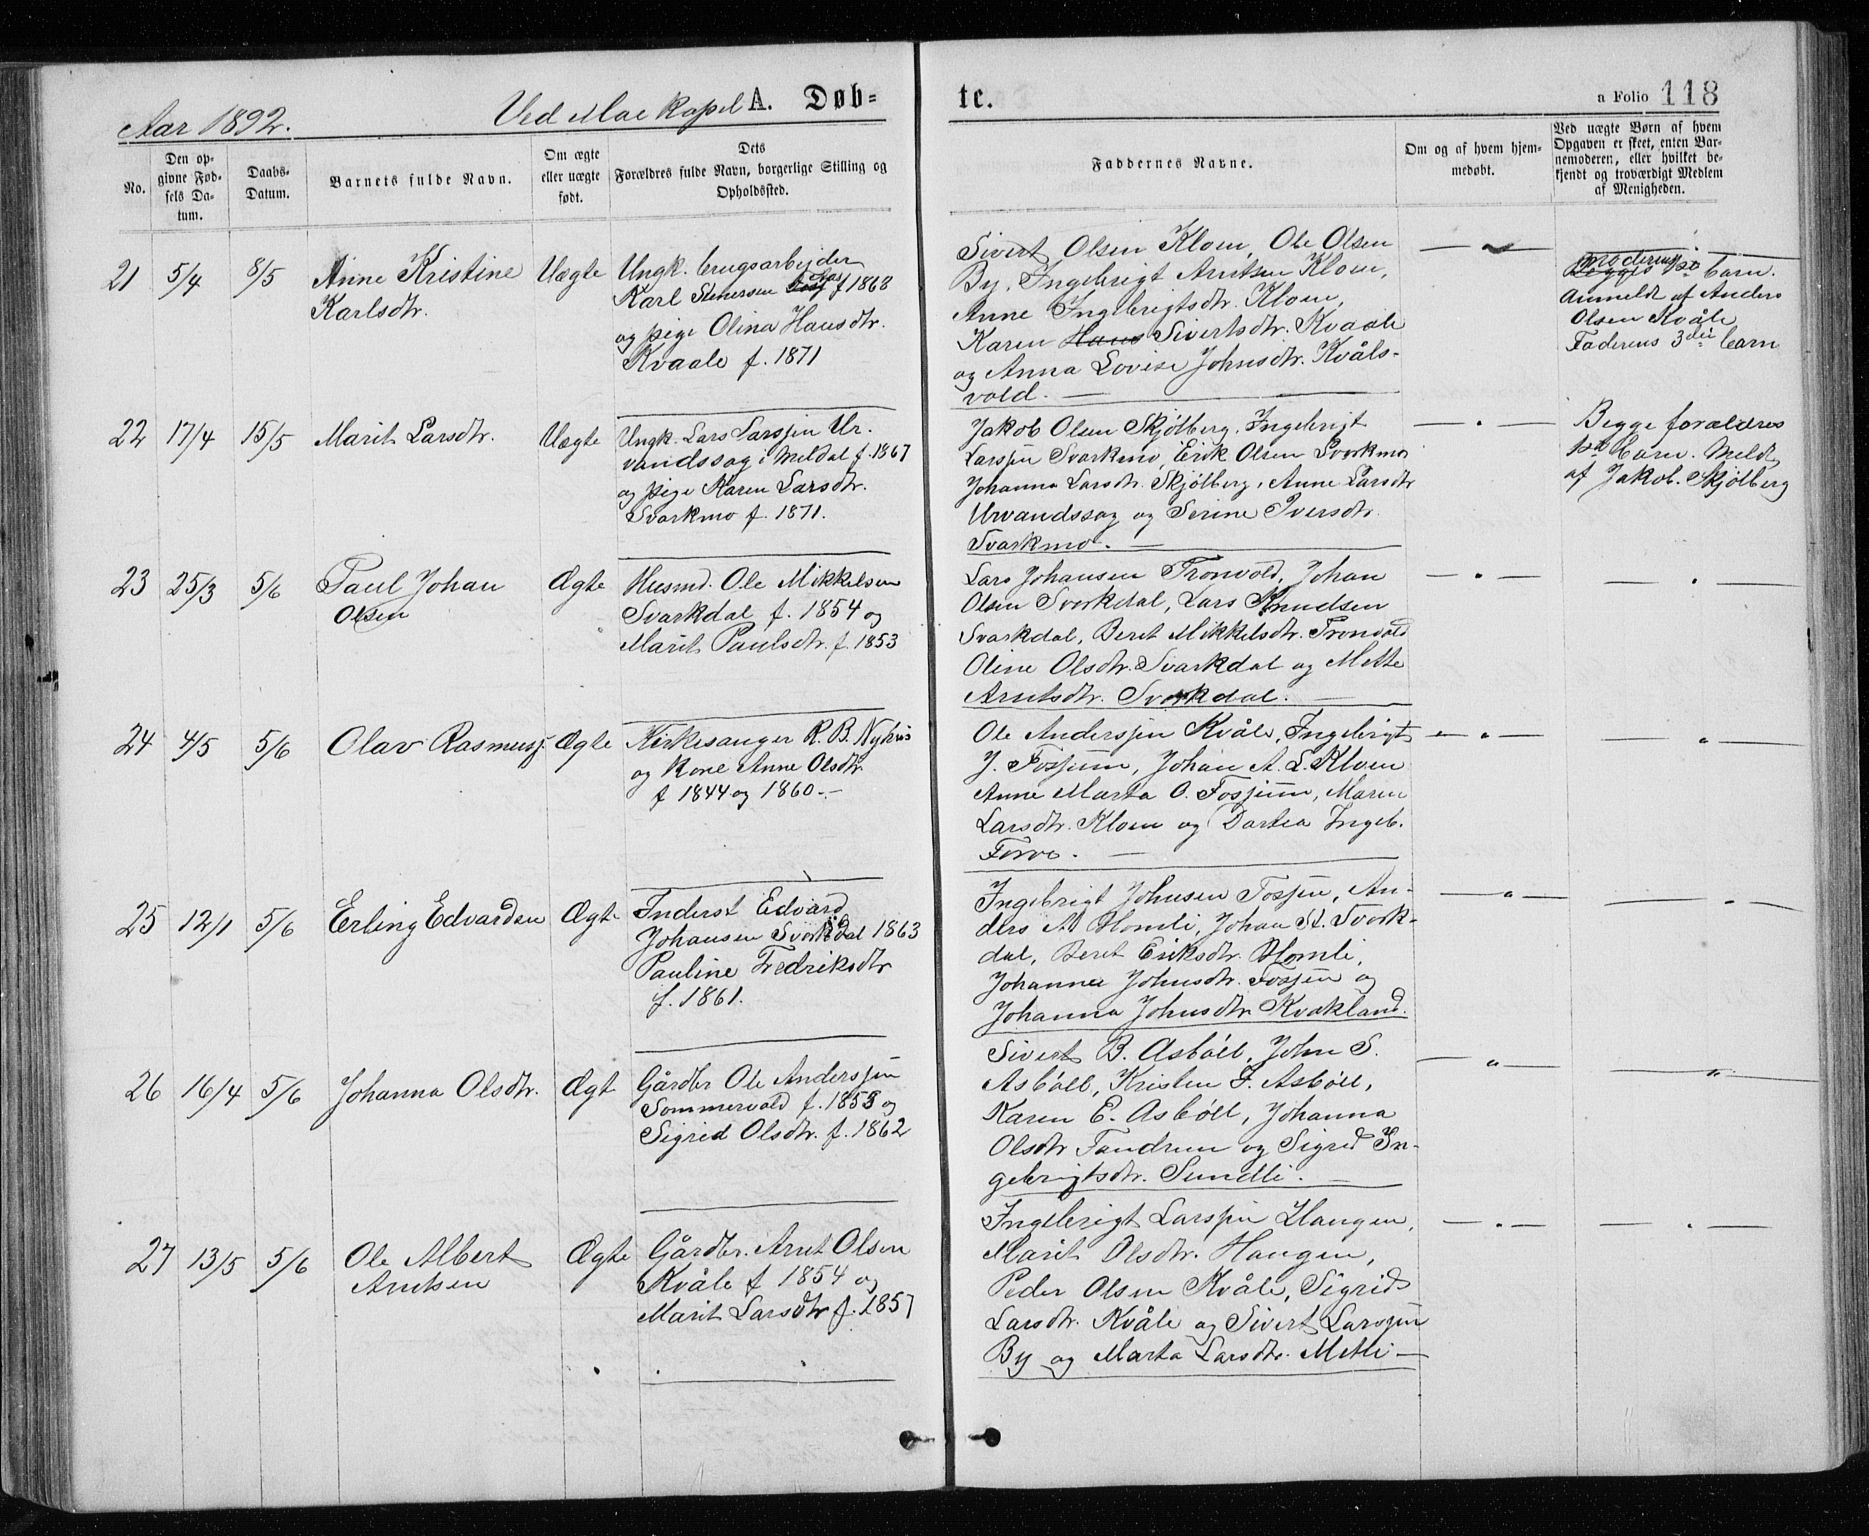 Aar 1892. Ved Moe Kapel A. Døb=
te. a Folio 118
No.
Den op-
givne Fød-
sels Da-
tum.
Daabs-
Datum.
Barnets fulde Navn.
Om ægte
eller uægte
født.
Dets
Forældres fulde Navn, borgerlige Stilling og
Opholdssted.
Faddernes Navne.
Om og af hvem hjem-
medøbt.
Ved uægte Børn af hvem
Opgaven er skeet, enten Bar-
nemoderen, eller hvilket be-
kjendt og troværdigt Medlem
af Menigheden.
21 5/4 8/5
Anne Kristine
Karlsdtr.
Uægte
Ungk. brugsarbejder
Karl Stenersen f 1868
og pige Olina Hansdtr.
Kvaale f. 1871
Sivert Olsen Kloen, Ole Olsen
By, Ingebrigt Arntsen Kloen,
Anne Ingebrigtsdtr. Kloen,
Karen Hans Sivertsdtr. Kvaale
og Anna Lovise Johnsdtr. Kvåls-
vold. —
— " —
Moderens
Begges 1ste barn.
Anmeldt af Anders
Olsen Kvåle
Faderens 3die barn
22 17/4 15/5
Marit Larsdtr.
Uægte
Ungk. Lars Larssen Ur-
vandssag i Meldal f. 1867
og pige Karen Larsdtr.
Svorkmo f. 1871.
Jakob Olsen Skjølberg, Ingebrigt
Larssen Svorkmo, Erik Olsen Svorkmo
Johanna Larsdtr. Skjølberg, Anne Larsdtr
Urvandssag og Serine Iversdtr.
Svorkmo. —
— " —
Begge forældres
1ste barn. Meldt
af Jakob. Skjølberg
23 25/3 5/6
Paul Johan
Olsen
Ægte
Husmd. Ole Mikkelsen
Svorkdal f. 1854 og
Marit Paulsdtr. f. 1853
Lars Johansen Tronvold, Johan
Olsen Svorkdal, Lars Knudsen
Svorkdal, Beret Mikkelsdtr. Tronvold
Oline Olsdtr. Svorkdal og Mette
Arntsdtr. Svorkdal. —
— " — — " —
24 4/5 5/6
Olav Rasmuss.
Ægte
Kirkesanger R. B. Nyhus
og kone Anne Olsdtr.
f 1844 og 1860.—
Ole Anderssen Kvåle, Ingebrigt
J. Fossum, Johan A. L. Kloen
Anne Marta O. Fossum, Maren
Larsdtr. Kloen og Dortea Ingeb.
Forve. —
— " — — " —
25 12/1 5/6
Erling Edvardsen
Ægte
Inderst Edvard
Johansen Svorkdal 1863
Pauline Fredriksdtr
f. 1861.
Ingebrigt Johnsen Fossen, An-
ders A Homli, Johan St. Svork-
dal, Beret Eriksdtr. Homli,
Johanna Johnsdtr. Fossen og
Johanna Johnsdtr. Kvakland.
— " — — " —
26 16/4 5/6
Johanna Olsdtr.
Ægt
Gårdbr Ole Anderssen
Sommervold f. 1858 og
Sigrid Olsdtr. f. 1862
Sivert B. Asbøll, John S.
Asbøll, Kristen F. Asbøll,
Karen E. Asbøll, Johanna
Olsdtr Fandrem og Sigrid In-
gebrigtsdtr. Sundli. —
— " — — " —
27 13/5 5/6
Ole Albert
Arntsen
Ægte
Gårdbr. Arnt Olsen
Kvåle f 1854 og
Marit Larsdtr f. 1857
Ingebrigt Larssen Haugen,
Marit Olsdtr. Haugen,
Peder Olsen Kvåle, Sigrid
Larsdtr. Kvåle og Sivert Larssen
By og Marta Larsdtr. Metli —
— " — — " —